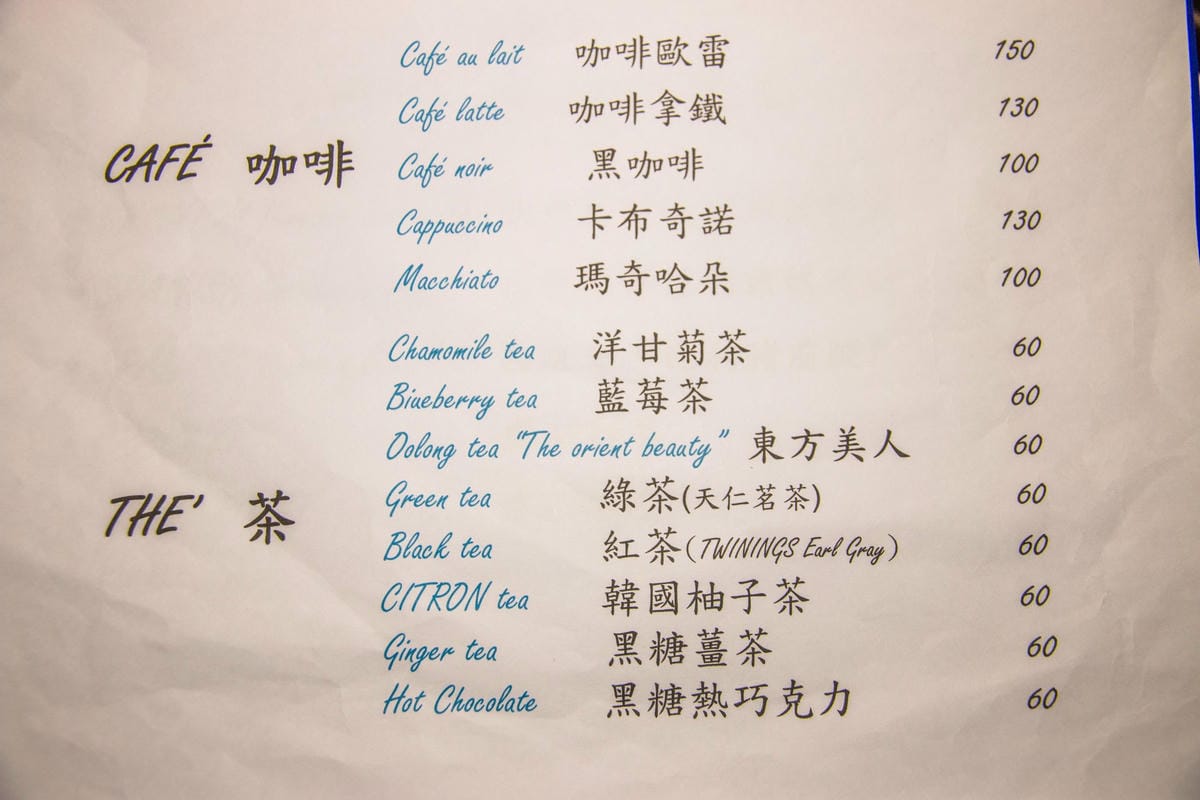 Café au lait 咖啡歐雷 150
Café latte 咖啡拿鐵 130
CAFÉ 咖啡 Café noir 黑咖啡 100
Cappuccino 卡布奇諾 130
Macchiato 瑪奇哈朵 100
Chamomile tea 洋甘菊茶 60
Biueberry tea 藍莓茶 60
Oolong tea “The orient beauty” 東方美人 60
Green tea 綠茶(天仁茗茶) 60
THE' 茶
Black tea 紅茶(TWININGS Earl Gray) 60
CITRON tea 韓國柚子茶 60
Ginger tea 黑糖薑茶 60
Hot Chocolate 黑糖熱巧克力 60